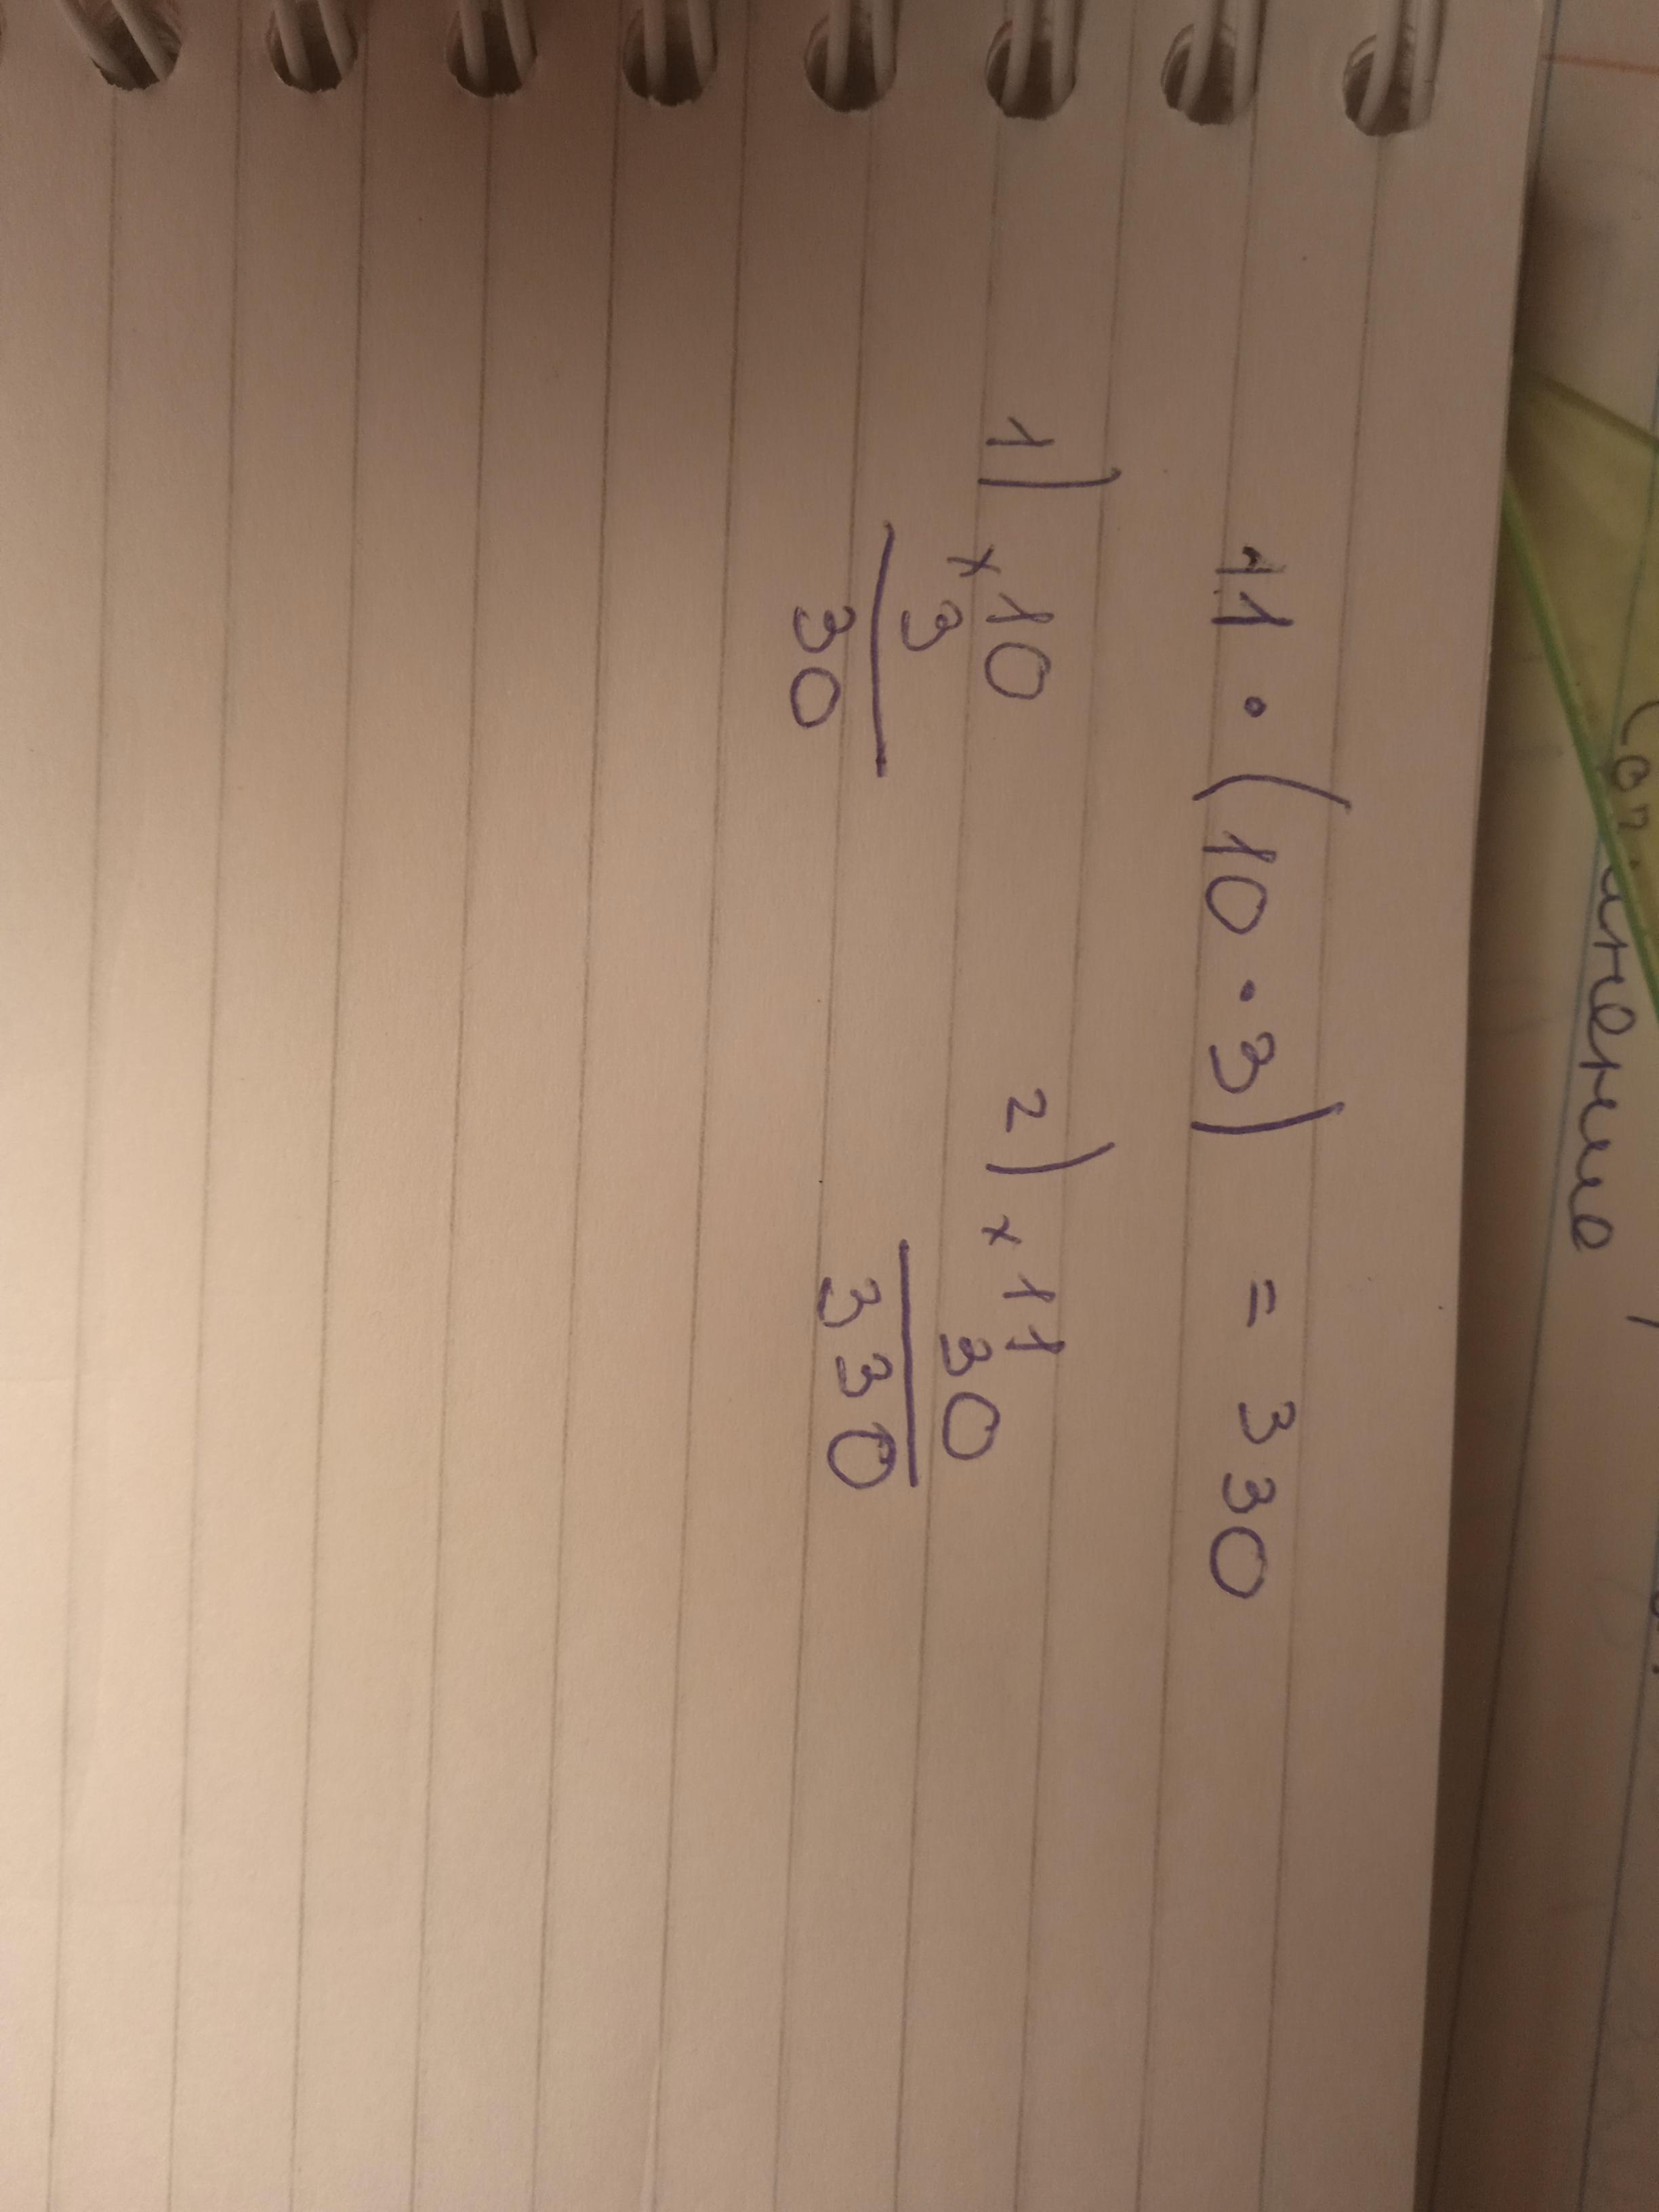 11 · (10 · 3) = 330
1) × 10
3
30
2) × 11
30
330